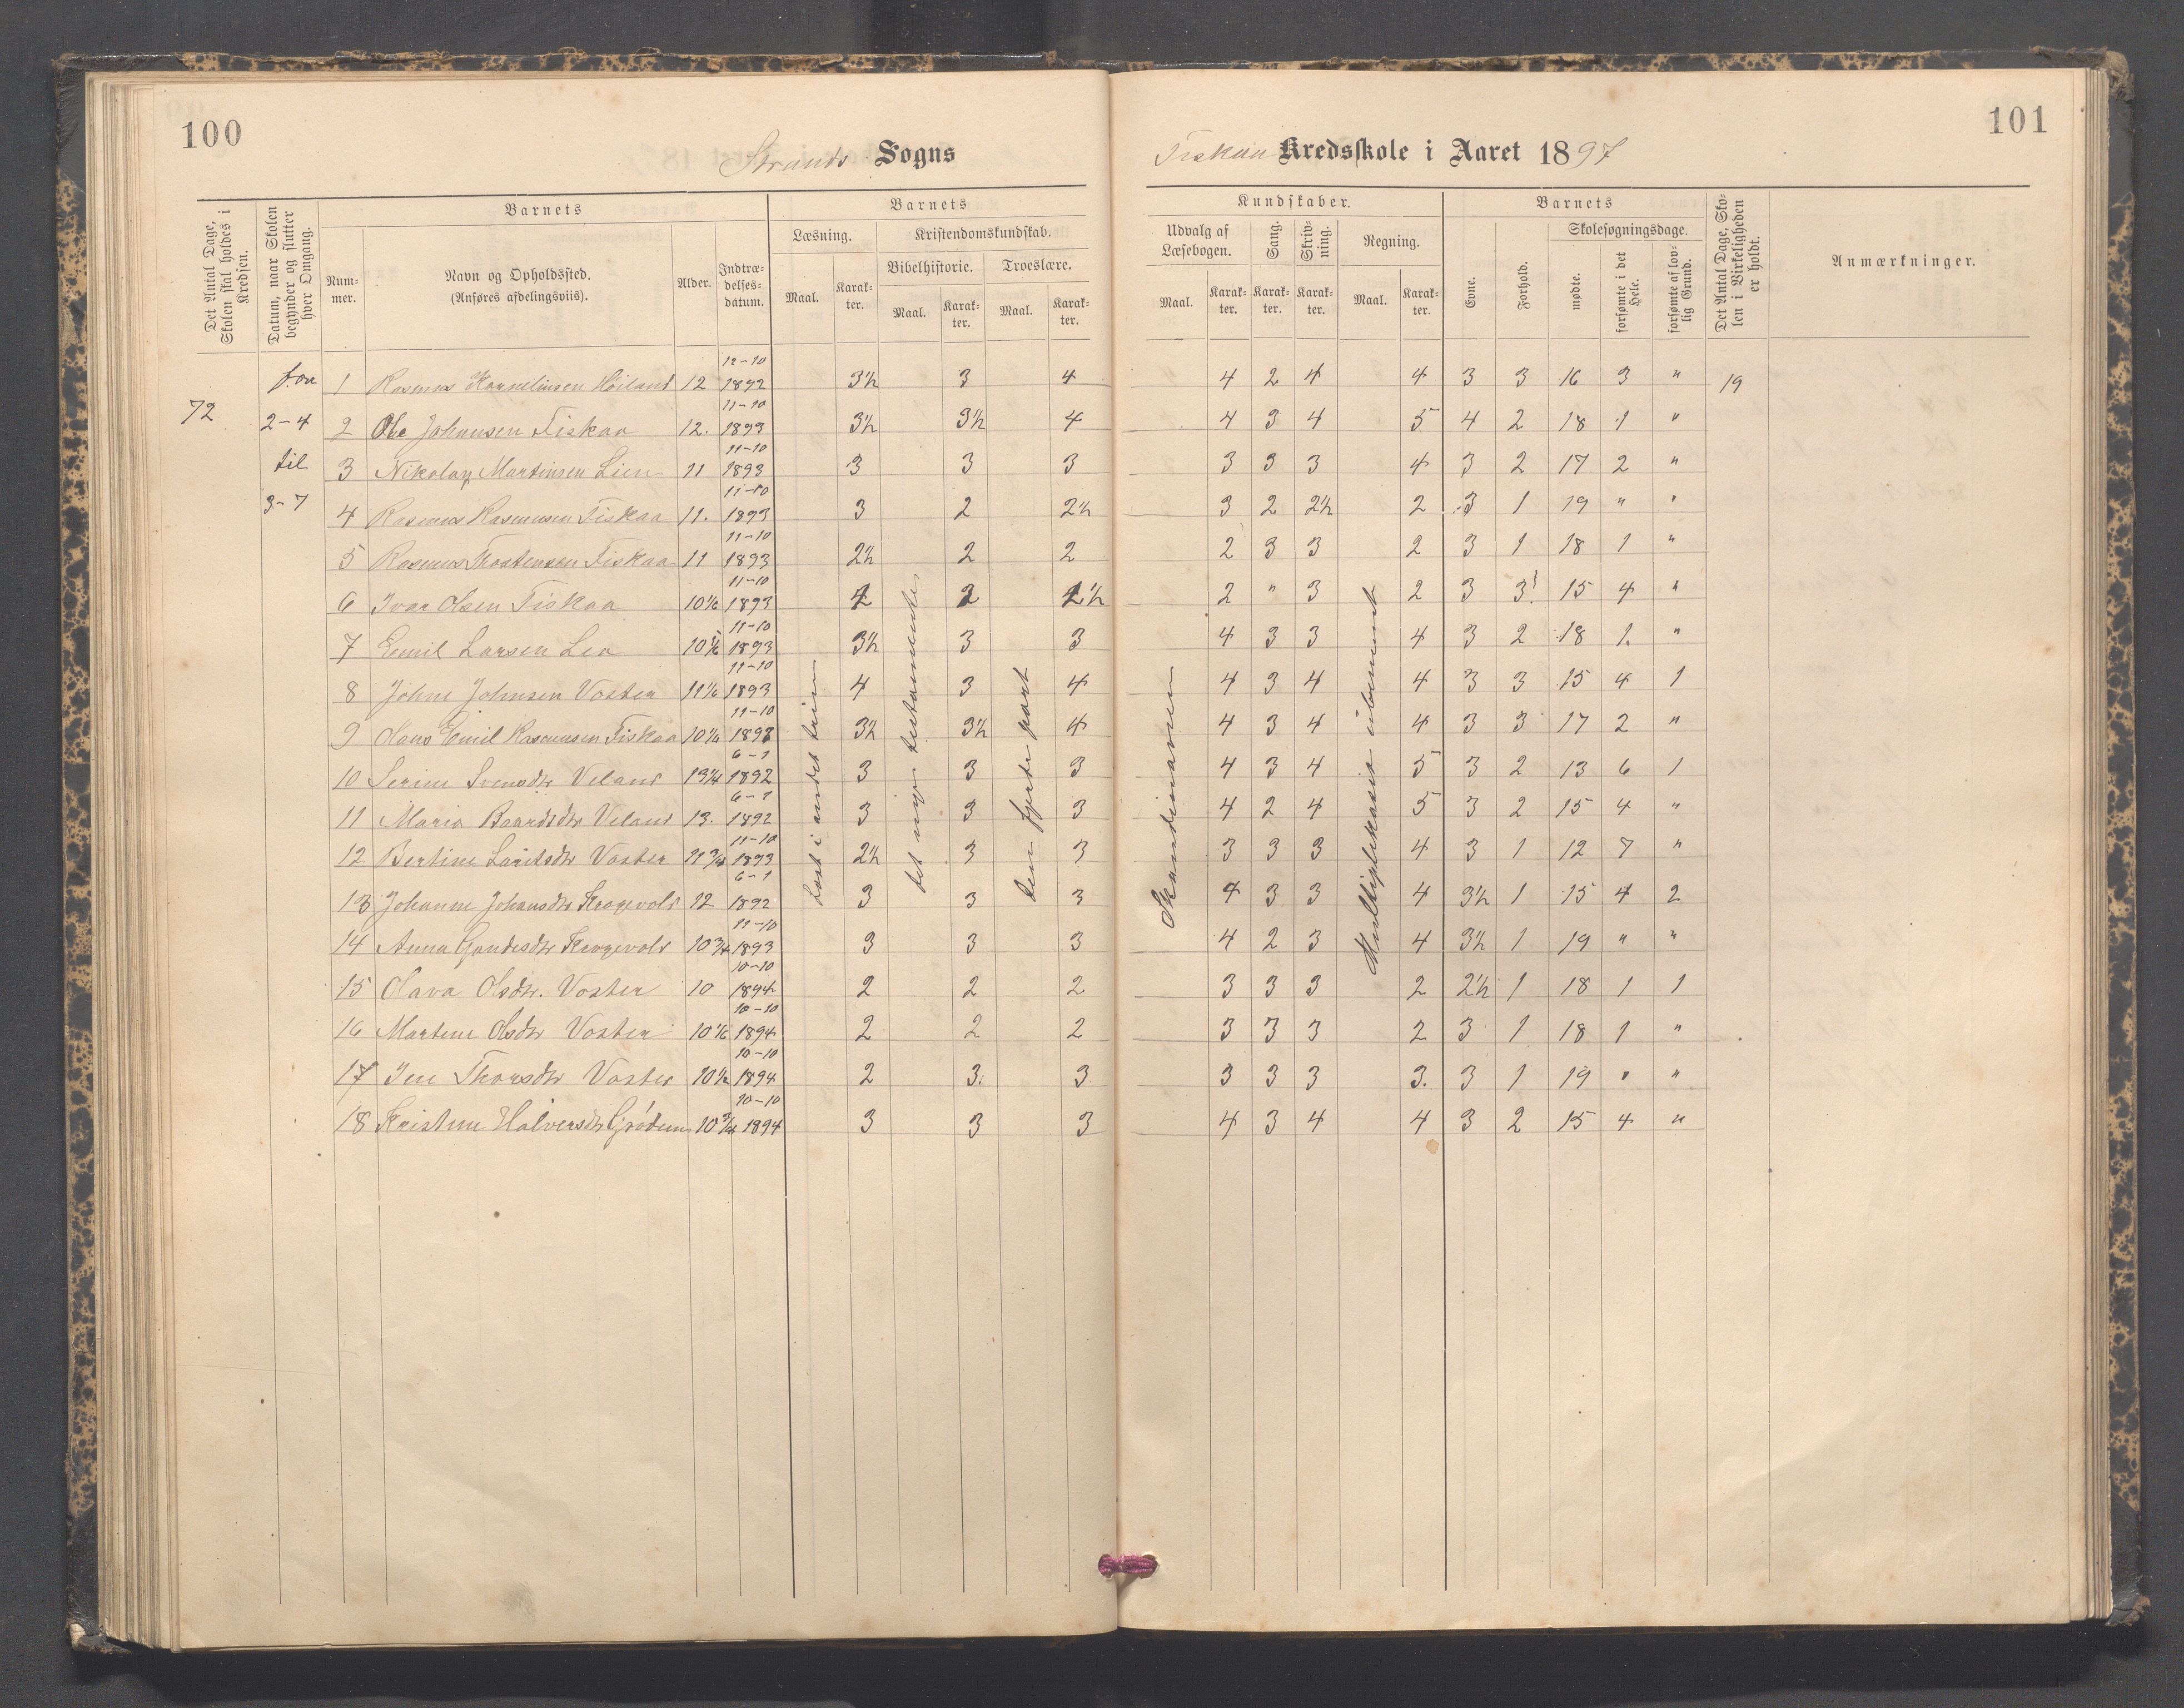 100
Strands Sogns
101
Fiskaa Kredsskole i Aaret 1897
Det Antal Dage, Skolen skal holdes i Kredsen.
Datum, naar Skolen begynder og slutter hver Omgang.
Barnets
Num-mer.
Navn og Opholdssted. (Anføres afdelingsviis).
Alder.
Indtræ-delses-datum.
Barnets
Læsning.
Kristendomskundskab.
Bibelhistorie.
Troeslære.
Maal. Karak-ter. Maal. Karak-ter. Maal. Karak-ter.
Kundskaber.
Udvalg af Læsebogen.
Sang.
Skriv-ning.
Regning.
Maal. Karak-ter. Karak-ter. Karak-ter. Maal. Karak-ter.
Barnets
Evne.
Forhold.
Skolesøgningsdage.
mødte.
forsømte i det Hele.
forsømte af lov-lig Grund.
Det Antal Dage, Sko-len i Virkeligheden er holdt.
Anmærkninger.
72
fra
2-4
til
3-7
1 Rasmus Kornelius​en Høiland 12 12-10 1892 3½ 3 4 4 2 4 4 3 3 16 3 " 19
2 Ole Johansen Fiskaa 12. 11-10 1893 3½ 3½ 4 4 3 4 5 4 2 18 1 "
3 Nikolay Martinsen Lien 11 11-10 1893 3 3 3 3 3 3 4 3 2 17 2 "
4 Rasmus Rasmussen Fiskaa 11. 11-10 1893 3 2 2½ 3 2 2½ 2 3 1 19 " "
5 Rasmus Thostensen Fiskaa 11 11-10 1893 2½ 2 2 2 3 3 2 3 1 18 1 "
6 Ivar Olsen Fiskaa 10 1/6 11-10 1893 2 2 1½ 2 " 3 2 3 3! 15 4 "
7 Emil Larsen Lea 10 5/6 11-10 1893 3½ 3 3 4 3 3 4 3 2 18 1. "
8 Johne Johnsen Voster 11 1/6 11-10 1893 4 3 4 4 3 4 4 3 3 15 4 1
9 Hans Emil Rasmussen Fiskaa 10 1/6 11-10 1893 3½ 3½ 4 4 3 4 4 3 3 17 2 "
10 Serine Svensdtr Veland 13 1/4 6-1 1892 3 3 3 4 3 4 5 3 2 13 6 1
11 Maria Baardsdtr Veland 13. 6-1 1892 3 3 3 4 2 4 5 3 2 15 4 "
12 Bertine Lauritsdtr Voster 11 3/4 11-10 1893 2½ 3 3 3 3 3 4 3 1 12 7 "
13 Johanne Johansdtr Krogevold 12 6-1 1892 3 3 3 4 3 3 4 3½ 1 15 4 2
14 Anna Gundesdtr Krogevold 10 3/4 11-10 1893 3 3 3 4 2 3 4 3½ 1 19 " "
15 Olava Olsdtr. Voster 10 10-10 1894 2 2 2 3 3 3 2 2½ 1 18 1 1
16 Martine Olsdtr Voster 10 1/6 10-10 1894 2 2 2 3 3 3 2 3 1 18 1 "
17 Ine Thorsdtr Voster 10½ 10-10 1894 2 3. 3 3 3 3 3. 3 1 19 " "
18 Kristine Halversdtr Grødem 10 3/4 10-10 1894 3 3 3 4 3 4 4 3 2 15 4 "
Læst i andet trin
det nye testamente
den fjerde part
Skandinavien
Multiplikasit ubenævnt